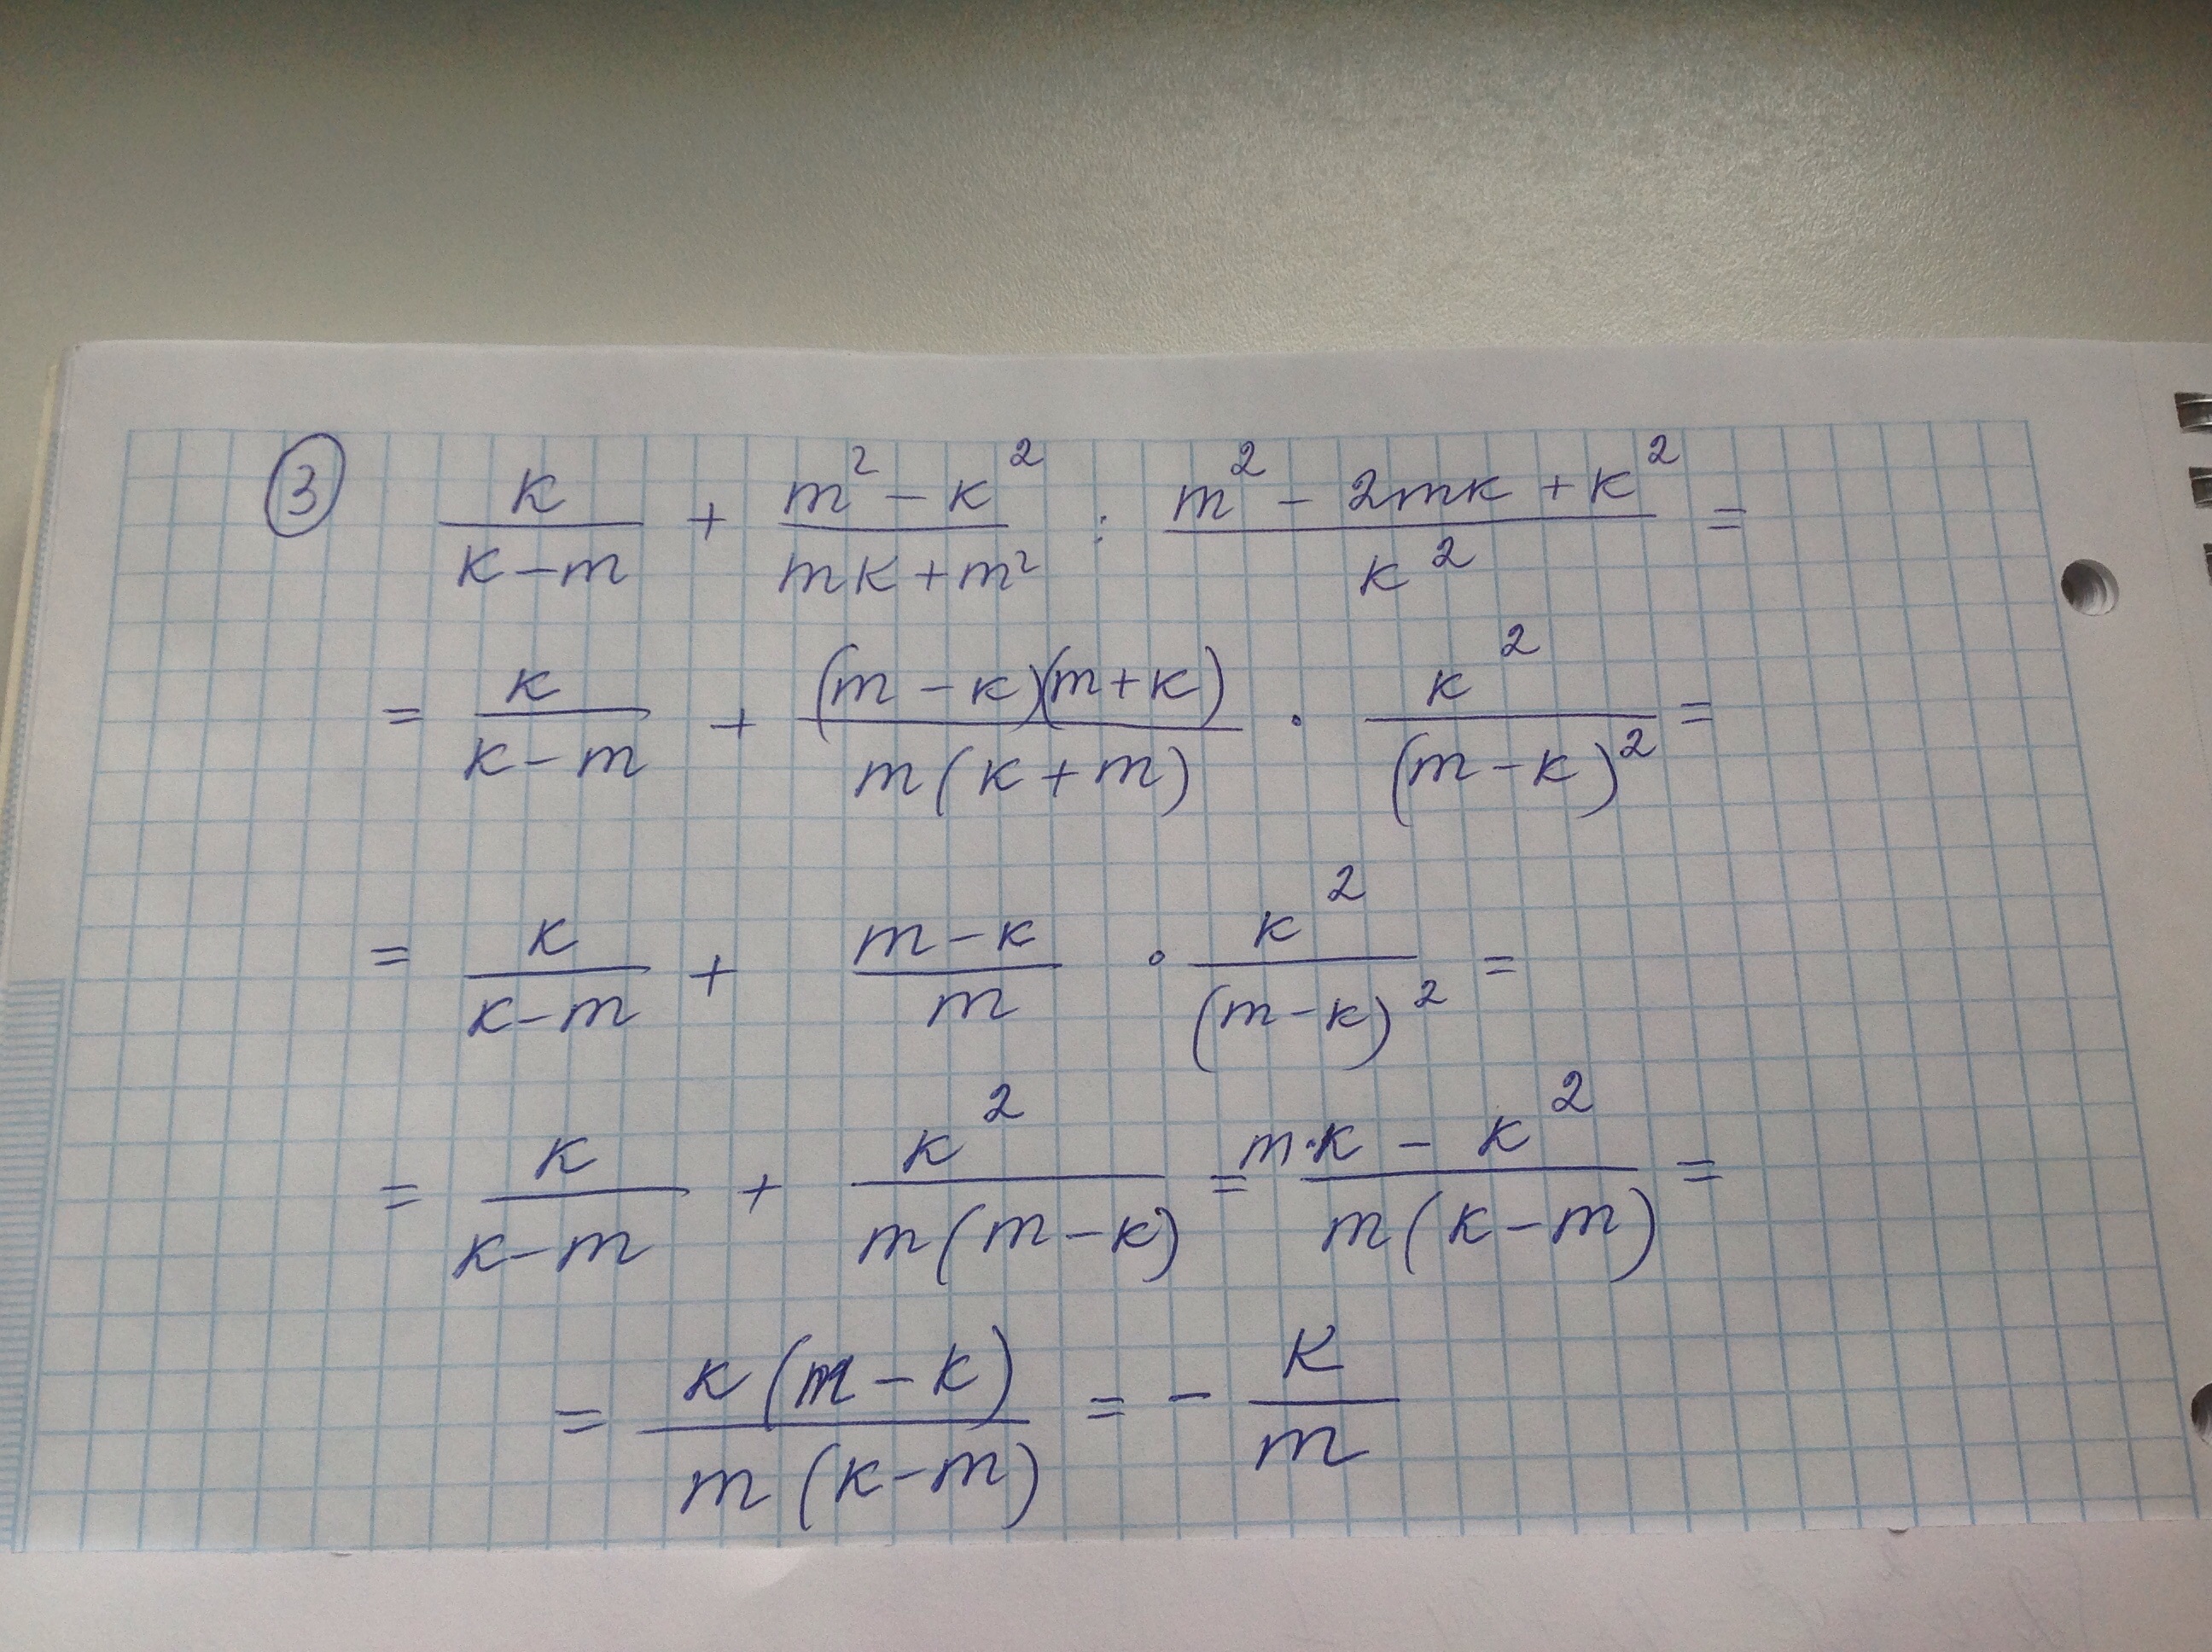 ③ k/(k-m) + (m²-k²)/(mk+m²) : (m²-2mk+k²)/k² =
= k/(k-m) + (m-k)(m+k)/(m(k+m)) · k²/(m-k)² =
= k/(k-m) + (m-k)/m · k²/(m-k)² =
= k/(k-m) + k²/(m(m-k)) = (m·k-k²)/(m(k-m)) =
= k(m-k)/(m(k-m)) = - k/m